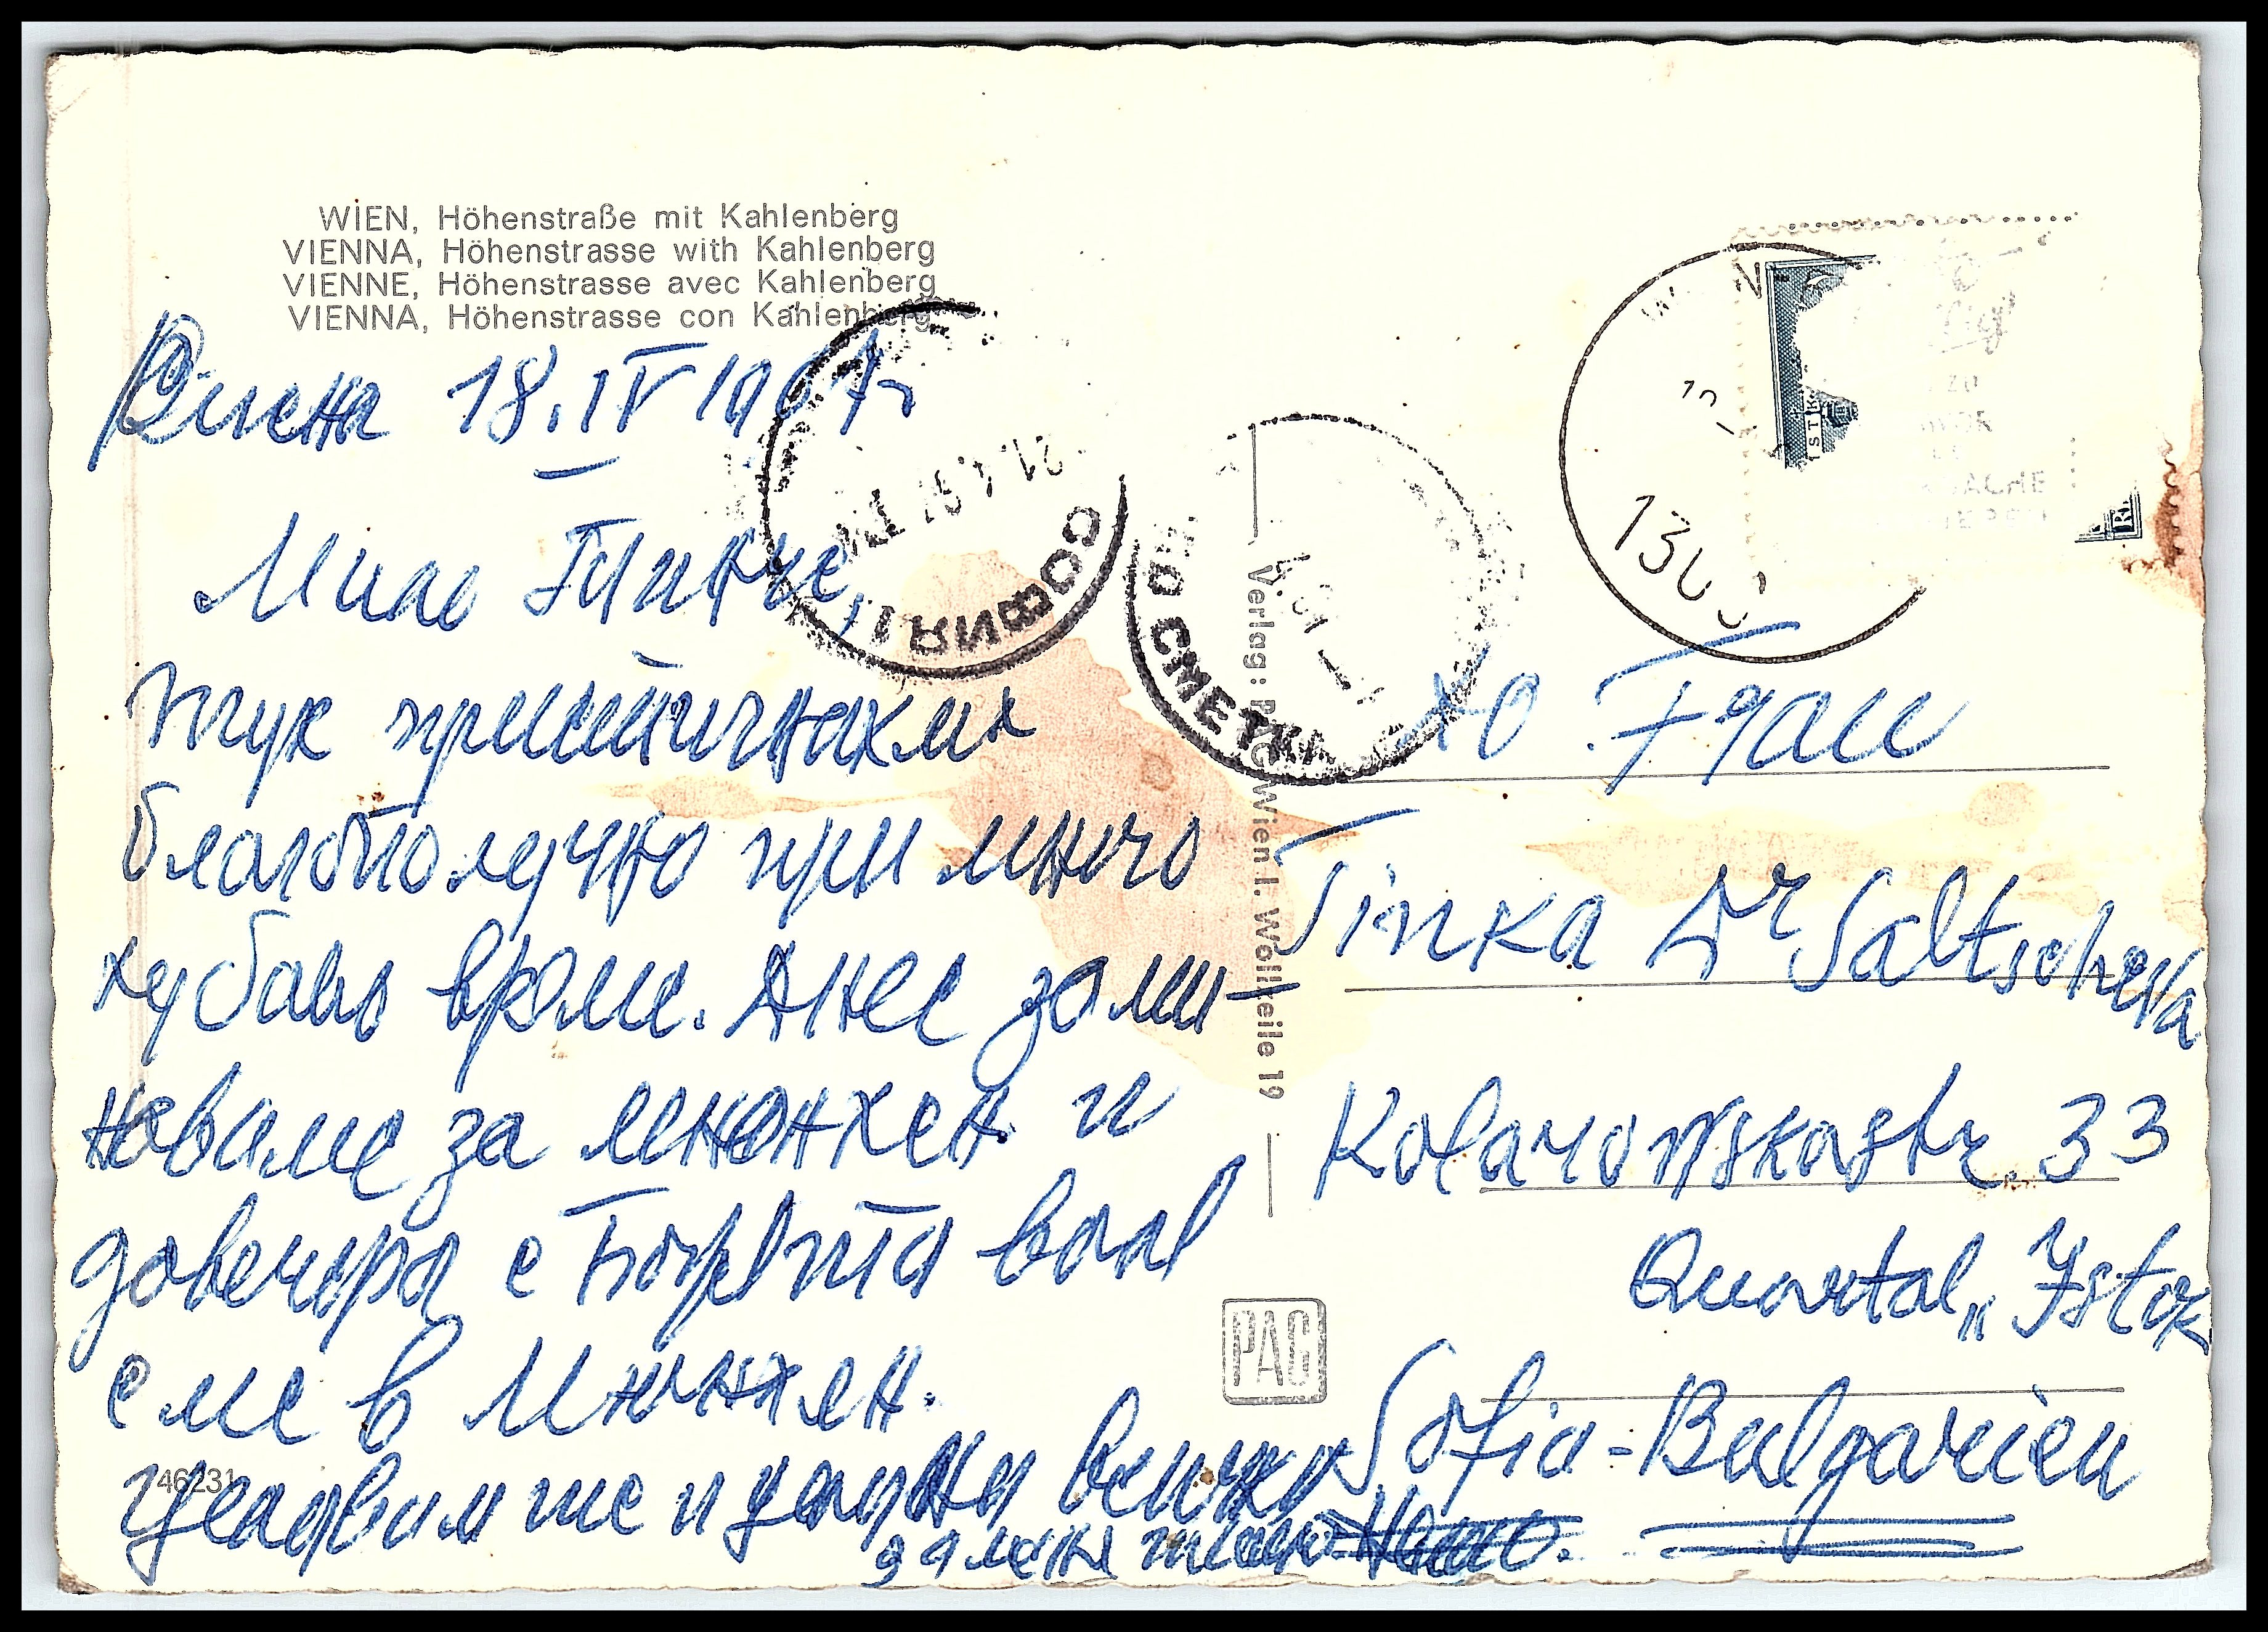 WIEN, Höhenstraße mit Kahlenberg
VIENNA, Höhenstrasse with Kahlenberg
VIENNE, Höhenstrasse avec Kahlenberg
VIENNA, Höhenstrasse con Kahlenberg
Виена 18.IV 1967
Мила Тинче,
тук пристигнахме
благополучно при много
хубаво време. Днес зами-
наваме за Мюнхен и
довечера с
сме в Мюнхен.
целувам те и
за мене
СОФИЯ
21.4.67
НО СМЕТКА
1300
Verlag: PAG Wien I. Wollzeile 19
PAG
46231
Frau
Tinka Dr Saltscheva
Kolarowskastr. 33
Quartal „Istok
Sofia-Bulgarien